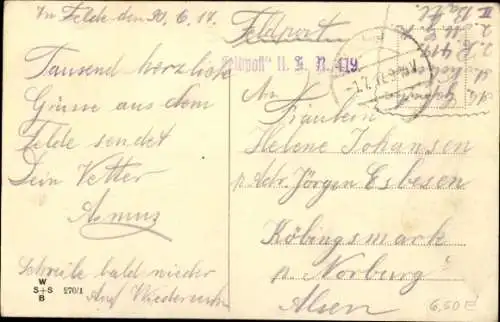 In Felde den 30.6.17.
Tausend herzliche
Grüsse aus dem
Felde sendet
Dein Vetter
Asmuz
Schreibe bald wieder
Auf Wiedersehn
W
S+S
B
270/1
Feldpost
"Feldpoll" II. R. 419.
1.7.17. 9-
An
Fräulein
Helene Johansen
p. Adr. Jörgen Esbesen
Köbingsmark
p. Norburg
Alsen
6,50 E